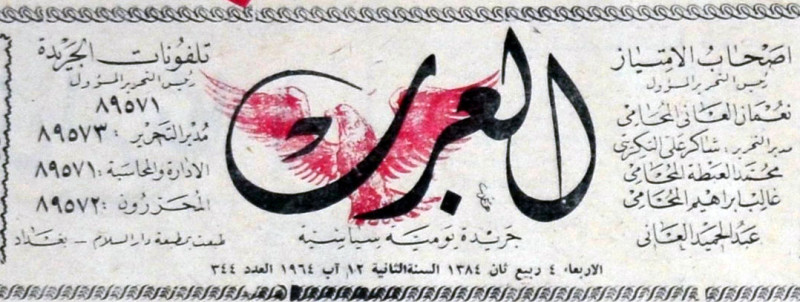 اصحاب الامتياز
رئيس التحرير المسؤول
نعمان العاني المحامي
مدير التحرير: شاكر علي التكريتي
محمد العبطة المحامي
غالب ابراهيم المحامي
عبد الحميد العاني
العرب
جريدة يومية سياسية
تلفونات الجريدة
رئيس التحرير المسؤول
٨٩٥٧١
مدير التحرير : ٨٩٥٧٣
الادارة والمحاسبة : ٨٩٥٧١
المحررون : ٨٩٥٧٢
طبعت بمطبعة دار السلام – بغداد
الاربعاء ٤ ربيع ثان ١٣٨٤ السنة الثانية ١٢ آب ١٩٦٤ العدد ٣٤٤